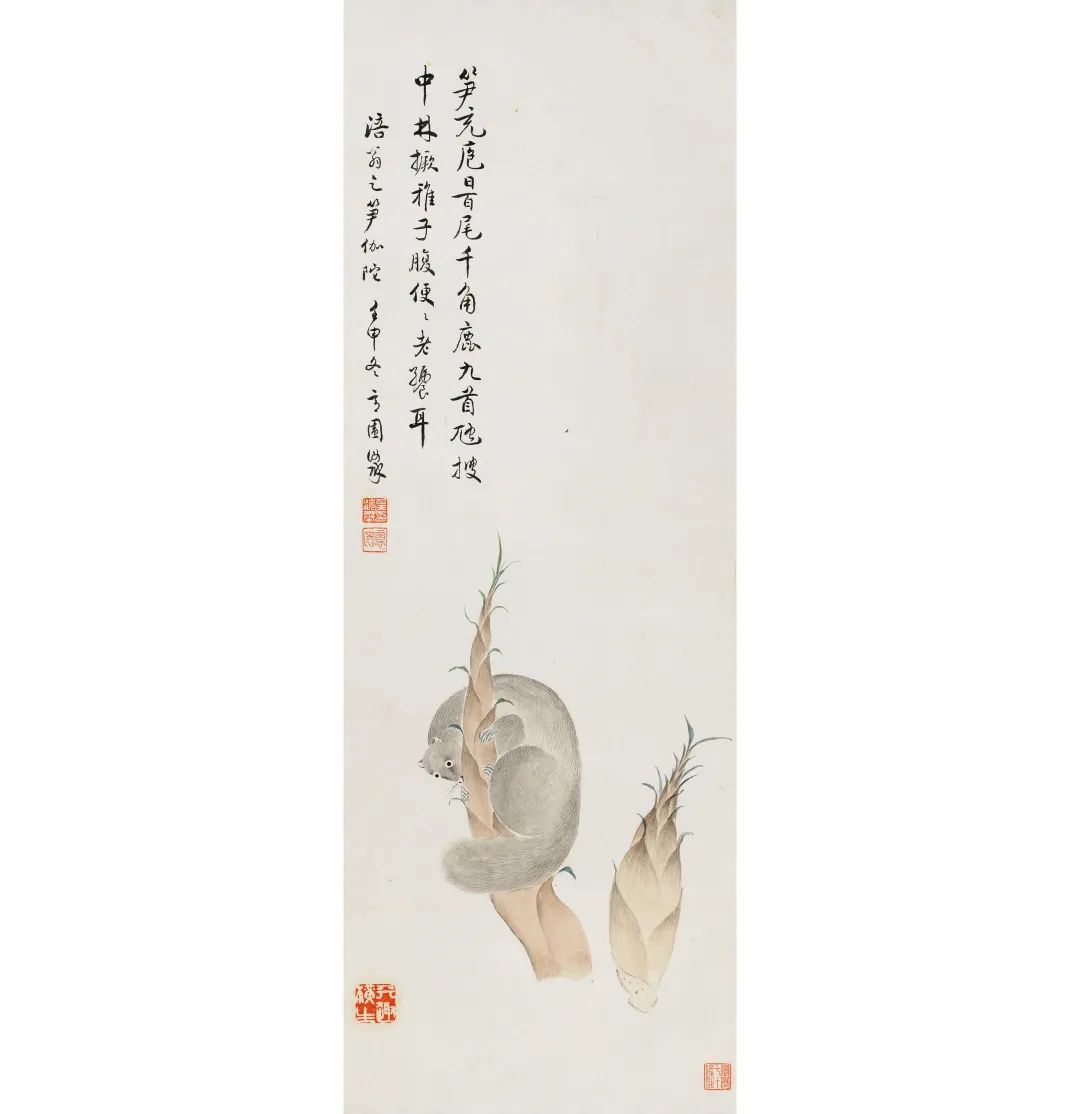 笋充庖日百尾千角鹿九首虺搜
中林撅稚子腹便〻老饕耳
涪翁之笋伽陀 壬申冬 園